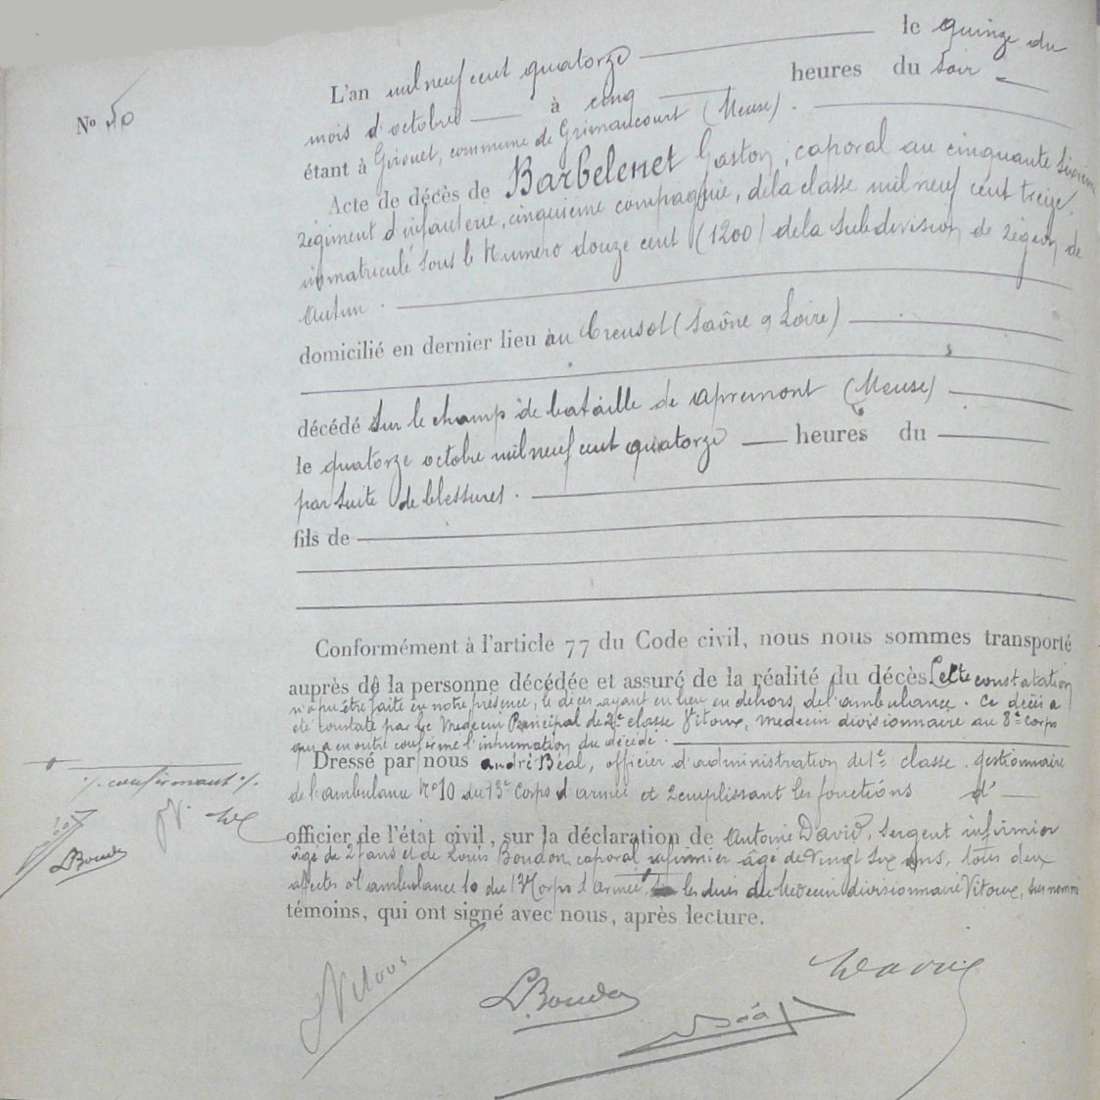 L'an mil neuf cent quatorze le quinze du
N° 50
mois d'octobre à cinq heures du soir
étant à commune de Grimaucourt (Meuse).
Acte de décès de Barbelenet Gaston, caporal au cinquante sixième
régiment d'infanterie, cinquième compagnie, de la classe mil neuf cent treize,
immatriculé sous le Numero douze cent (1200) de la subdivision de région de
Autun.
domicilié en dernier lieu au Creusot (Saône & Loire)
décédé sur le champ de bataille de apremont (Meuse)
le quatorze octobre mil neuf cent quatorze heures du
par suite de blessures.
fils de
Conformément à l'article 77 du Code civil, nous nous sommes transporté
auprès de la personne décédée et assuré de la réalité du décès Cette constatation
n'a pu être faite en notre présence, le décès ayant eu lieu en dehors de l'ambulance. Ce décès a
été constaté par le Medecin Principal de 2e classe Vitoux, medecin divisionnaire au 8e corps
qui a en outre confirmé l'inhumation du décédé.
Dressé par nous andré Béal, officier d'administration de 1e classe gestionnaire
./. confirmant ./.
de l'ambulance N°10 du 13e Corps d'armée et remplissant les fonctions d'
officier de l'état civil, sur la déclaration de Antoine David, sergent infirmier
L. Boudon
âgé de 27 ans et de Louis Boudon caporal infirmier âgé de vingt six ans, tous deux
affectés à l'ambulance 10 du 13e Corps d'Armée, les dires du Medecin divisionnaire Vitoux, sus nommé
témoins, qui ont signé avec nous, après lecture.
Vitoux
L. Boudon
Béal
David